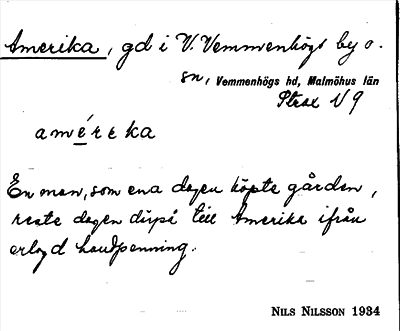 Amerika, gd i V. Vemmenhögs by o.
sn, Vemmenhögs hd, Malmöhus län
Strax V 9
amérika
En man, som ena dagen köpte gården,
reste dagen därpå till Amerika ifrån
erlagd handpenning.
NILS NILSSON 1934